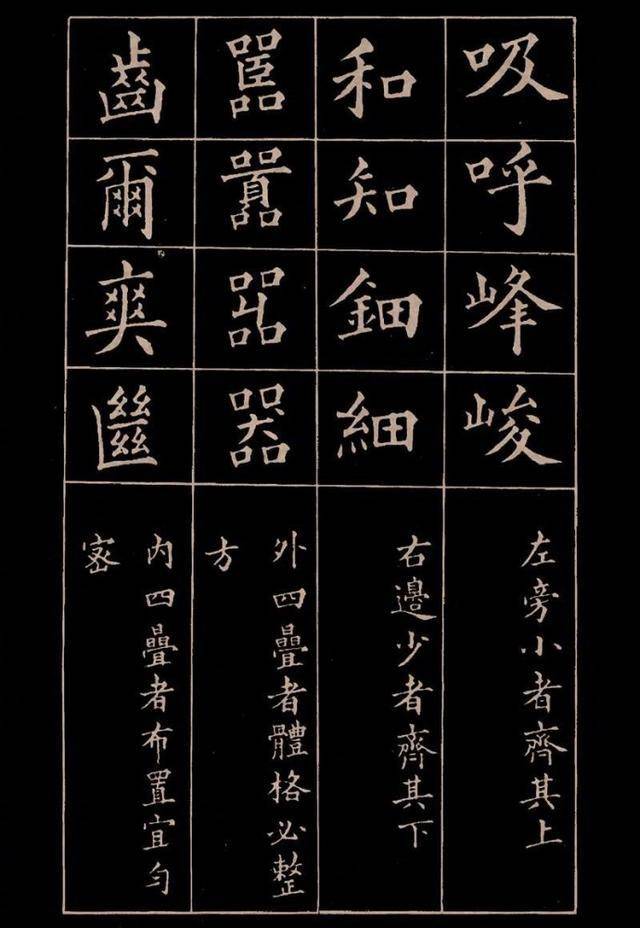 吸呼峰峻
左旁小者齊其上
和知鈿細
右邊少者齊其下
嚚囂嘂器
外四疊者體格必整
方
齒爾爽
内四疊者布置宜勻
密